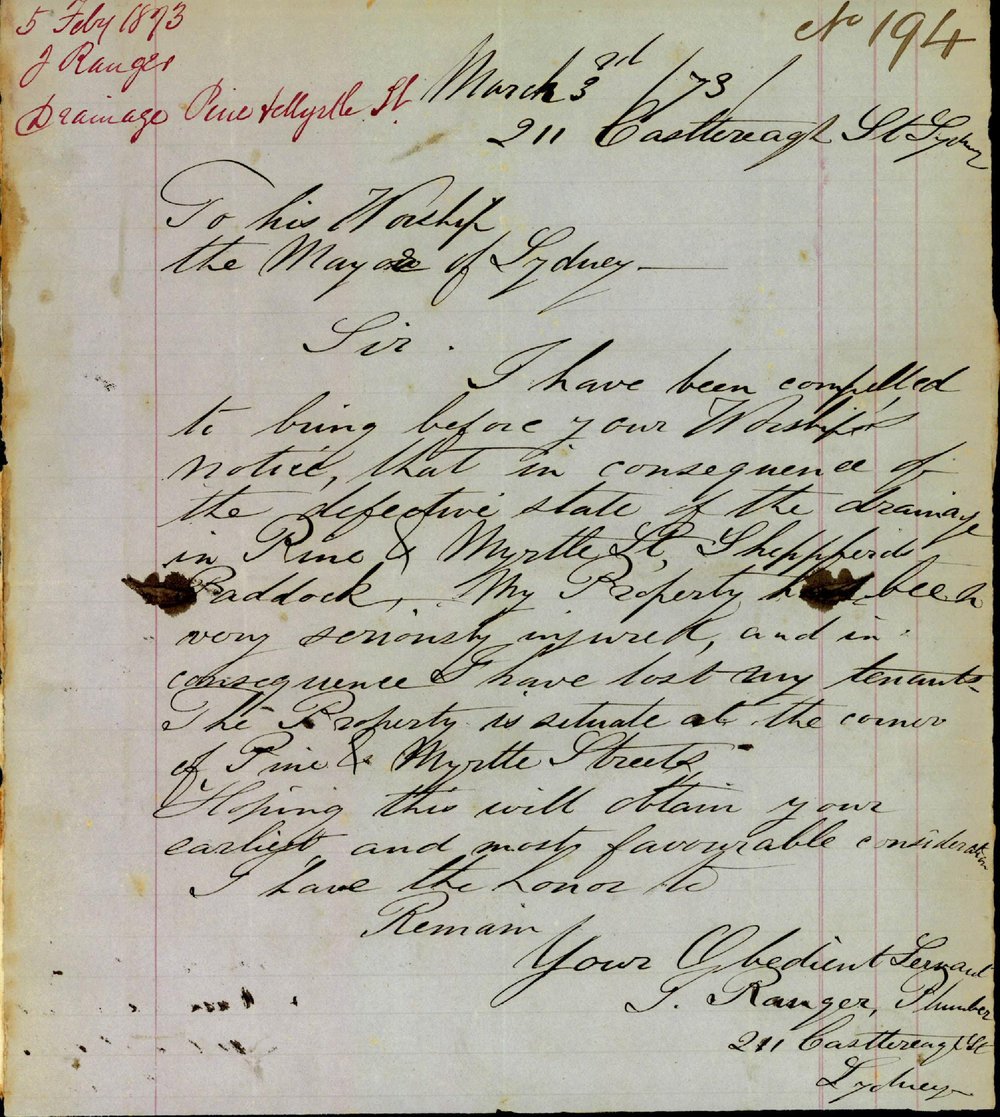 5 Feby 1873
J Ranger
Drainage Pine & Myrtle St.
No 194
March 3rd /73/
211 Casttereagh St Sydney
To his Worship
the Mayor of Sydney
Sir.
I have been compelled
to bring before your Worship's
notice, that in consequence of
the defective state of the drainage
in Pine & Myrtle St, Shepperds
Paddock, My Property has been
very seriously injured, and in
consequence I have lost my tenants
The Property is situate at the corner
of Pine & Myrtle Streets
Hoping this will obtain your
earliest, and most favourable consideration
I have the honor to
Remain
Your Obedient Servant
J. Ranger, Plumber
211 Casttereagh St
Sydney